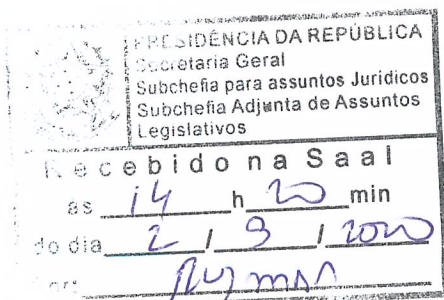 PRESIDÊNCIA DA REPÚBLICA
Secretaria Geral
Subchefia para assuntos Jurídicos
Subchefia Adjunta de Assuntos
Legislativos
Recebido na Saal
as 14 h 20 min
do dia 2 / 9 / 2020
por: